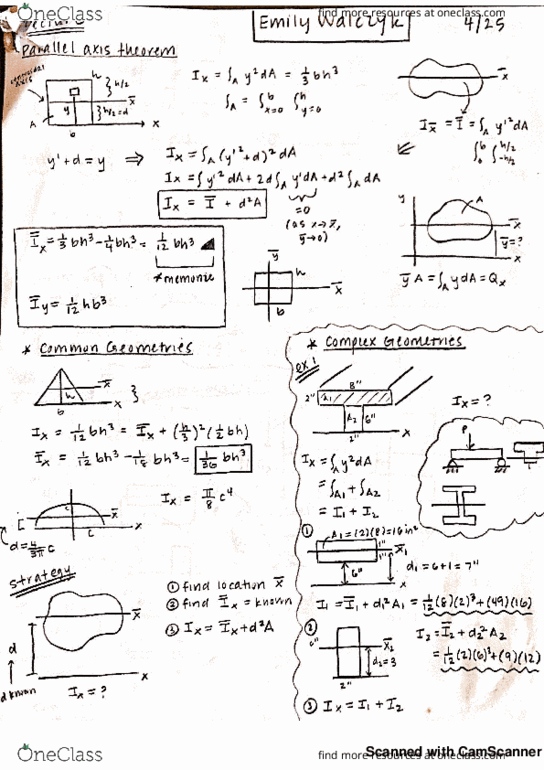 OneClass
find more resources at oneclass.com
Emily Walczyk
4/25
parallel axis theorem
centroidal axis
h
} h/2
x̄
y'
} h/2 = d
A
b
x
I_x = ∫_A y² dA = 1/3 bh³
∫_A = ∫_{x=0}^{b} ∫_{y=0}^{h}
x̄
I_x̄ = Ī = ∫_A y'² dA
∫_0^b ∫_{-h/2}^{h/2}
y' + d = y ⇒ I_x = ∫_A (y'² + d)² dA
I_x = ∫ y'² dA + 2d ∫_A y' dA + d² ∫_A dA
I_x = Ī + d²A
= 0
(as x → x̄,
ȳ → 0)
y
A
x̄
ȳ = ?
x
ȳA = ∫_A y dA = Q_x
Ī_x = 1/3 bh³ - 1/4 bh³ = 1/12 bh³
* memorize
Ī_y = 1/12 hb³
ȳ
h
x̄
b
* Common Geometries
h
x̄
b
x
}
I_x = 1/12 bh³ = Ī_x + (h/3)² (1/2 bh)
Ī_x = 1/12 bh³ - 1/18 bh³ = 1/36 bh³
c
x̄
c
x
d = 4/3π c
I_x = π/8 c⁴
strategy
① find location x̄
② find Ī_x = known
③ I_x = Ī_x + d²A
x̄
d
x
d known
I_x = ?
* Complex Geometries
ex:
8"
2"
A1
A2
6"
2"
x
I_x = ?
P
I_x = ∫_A y² dA
= ∫_A1 + ∫_A2
= I1 + I2
①
A1 = (2)(8) = 16 in²
1"
1"
x̄1
6"
d1 = 6 + 1 = 7"
x
I1 = Ī1 + d1² A1 = 1/12 (8)(2)³ + (49)(16)
②
6"
x̄2
d2 = 3
2"
x
I2 = Ī2 + d2² A2
= 1/12 (2)(6)³ + (9)(12)
③ I_x = I1 + I2
Scanned with CamScanner
OneClass
find more resources at oneclass.com